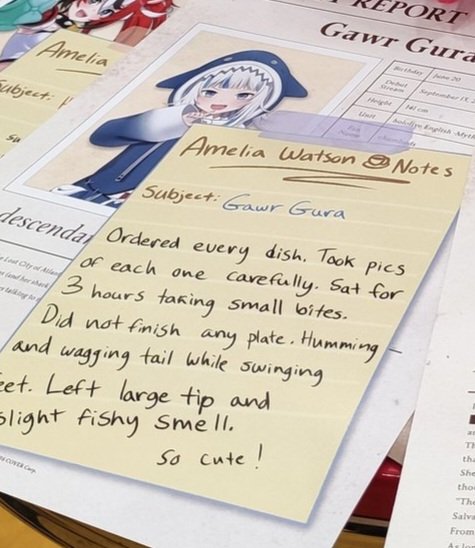 REPORT
Gawr Gura
Birthday June 20
Debut Stream September
Height 141 cm
Unit hololive English -Myth-
Fan Name
Amelia
Subject:
descendan
Lost City of Atlan
COVER Corp.
Amelia Watson Notes
Subject: Gawr Gura
Ordered every dish. Took pics
of each one carefully. Sat for
3 hours taking small bites.
Did not finish any plate. Humming
and wagging tail while swinging
eet. Left large tip and
slight fishy smell.
So cute!
She
"The
Salva
From
As lon